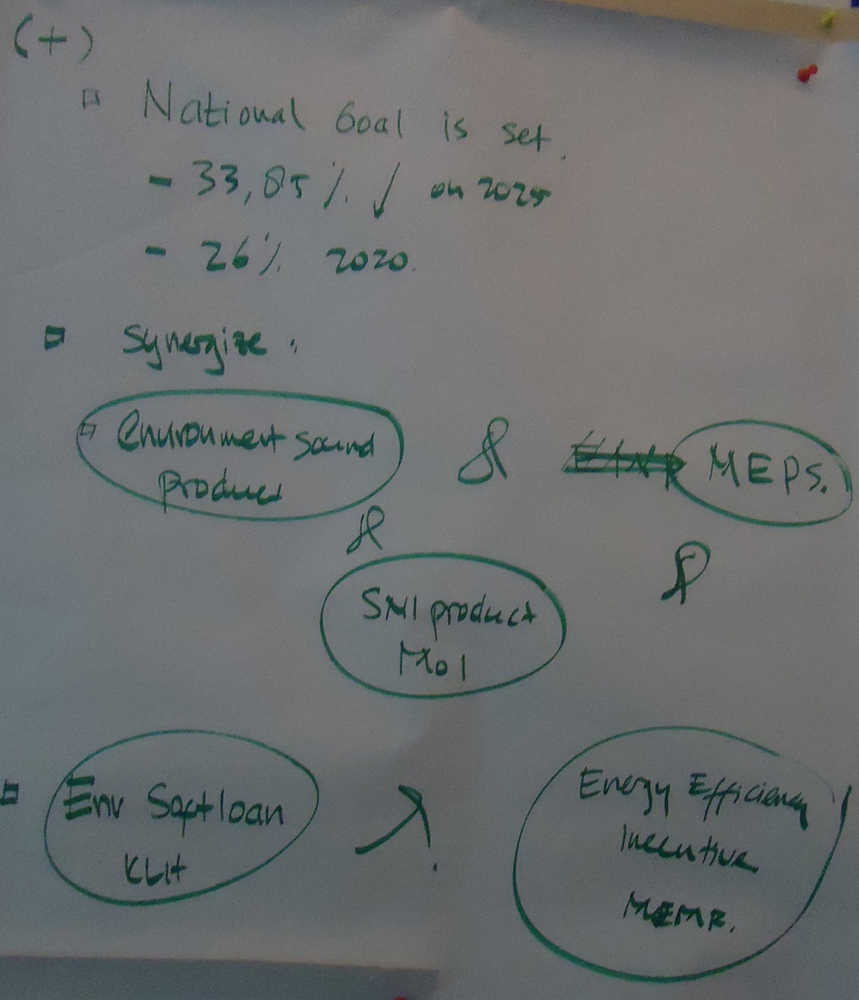 (+)
National Goal is set.
- 33,85% ↓ on 2025
- 26% 2020.
Synergize :
Environment sound & MEPS.
product
& &
SNI product
MoI
Env Soft loan Energy Efficiency
KLH Incentive
MEMR.